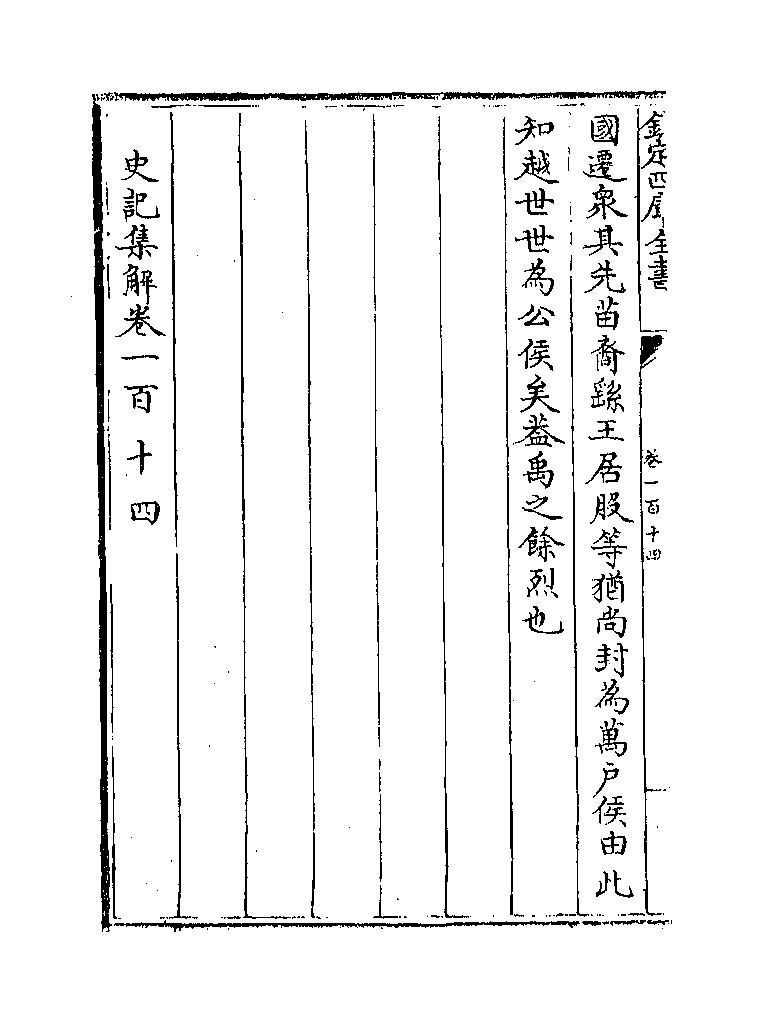 欽定四庫全書
卷一百十四
國遷衆其先苗裔繇王居股等猶尚封為萬戶侯由此
知越世世為公侯矣葢禹之餘烈也
史記集解卷一百十四